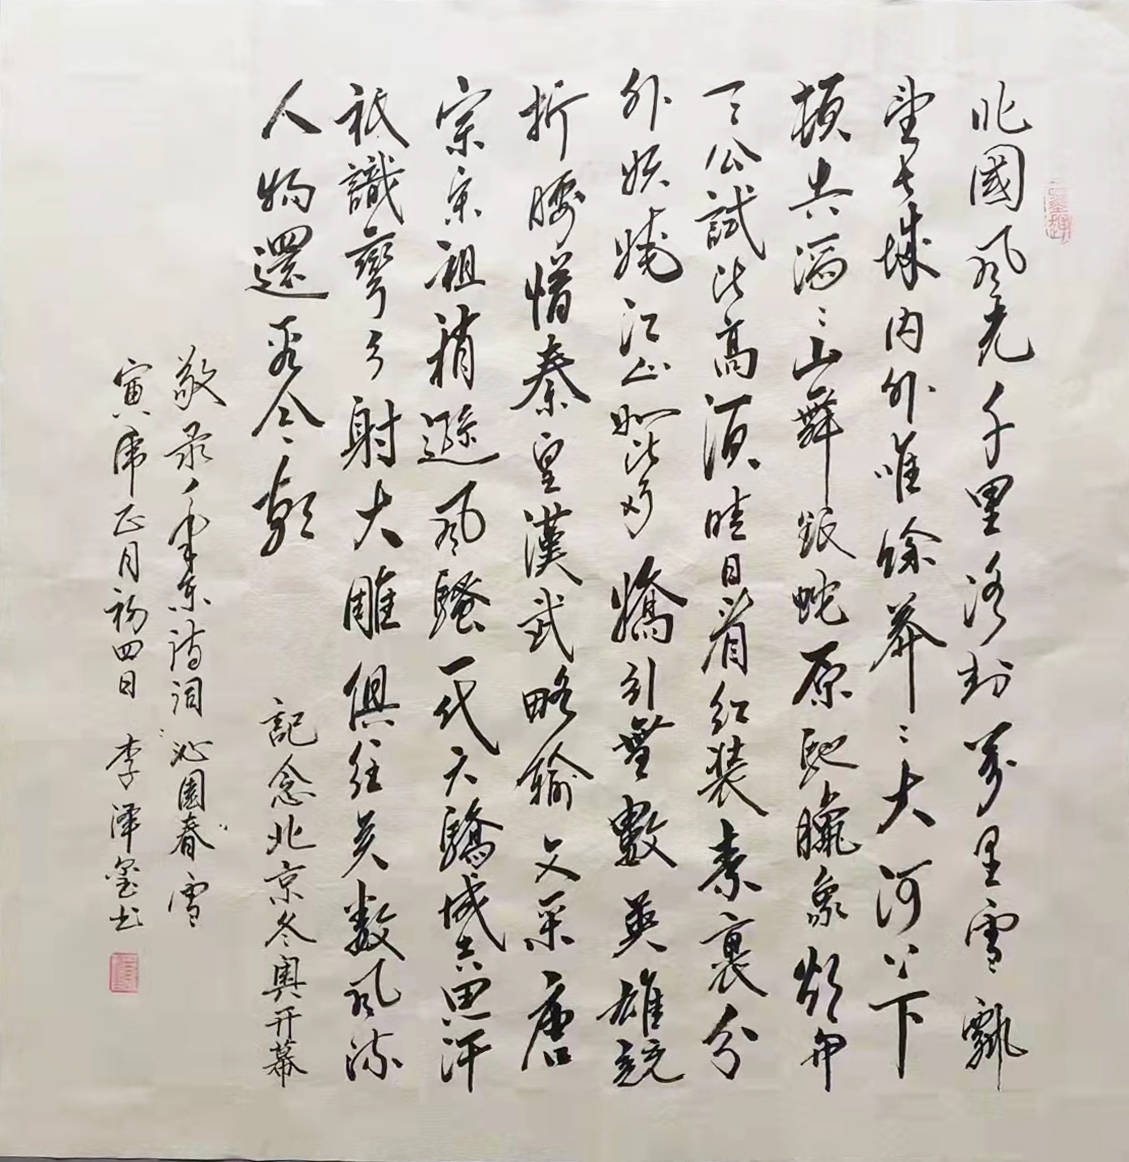 北國风光千里冰封萬里雪飄
望长城内外唯餘莽〻大河上下
頓失滔〻山舞銀蛇原馳臘象欲与
天公試比高須晴日看红装素裹分
外妖娆江山如此多嬌引無數英雄競
折腰惜秦皇漢武略輸文采唐
宗宋祖稍遜风騷一代天驕成吉思汗
祇識彎弓射大雕俱往矣数风流
人物還看今朝
記念北京冬奥开幕
敬录毛泽东诗词沁園春雪
寅虎正月初四日 李泽玺书